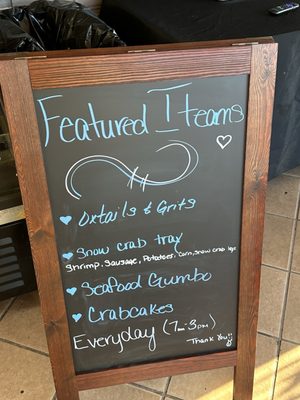 Featured Iteams
Oxtails & Grits
Snow crab tray
Shrimp, Sausage, Potatoes, Corn, snow crab legs
Seafood Gumbo
Crabcakes
Everyday (7am-3pm)
Thank You